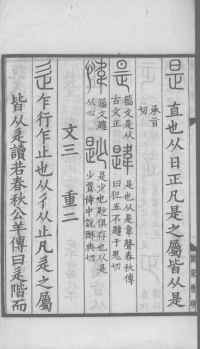 是 直也从日正凡是之屬皆从是
承旨
切
昰 籒文是从
古文正
韙 是也从是韋聲春秋傳
曰犯五不韙于鬼切
愇 籒文韙
从心
尟 是少也尟俱存也从是
少賈侍中說酥典切
文三 重二
辵 乍行乍止也从彳从止凡辵之屬
皆从辵讀若春秋公羊傳曰辵階而